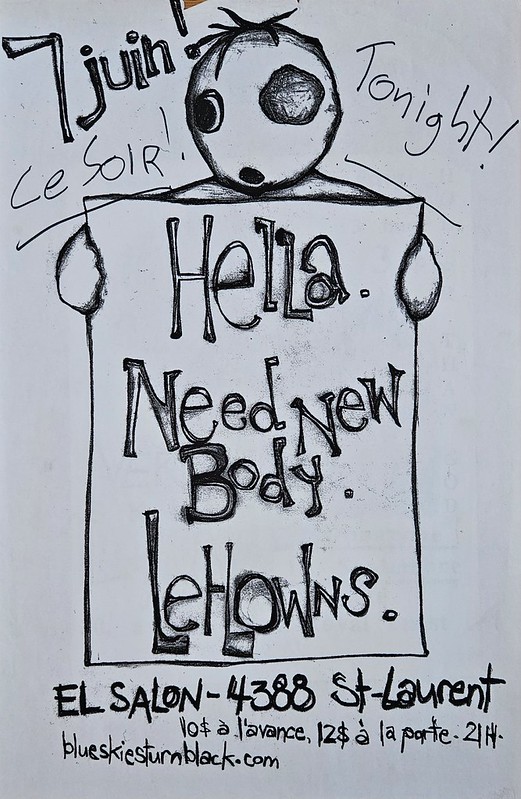 7 juin!
Ce Soir!
Tonight!
Hella.
Need New
Body.
LeHowns.
EL SALON - 4388 St-Laurent
10$ à l'avance, 12$ à la porte. 21H.
blueskiesturnblack.com